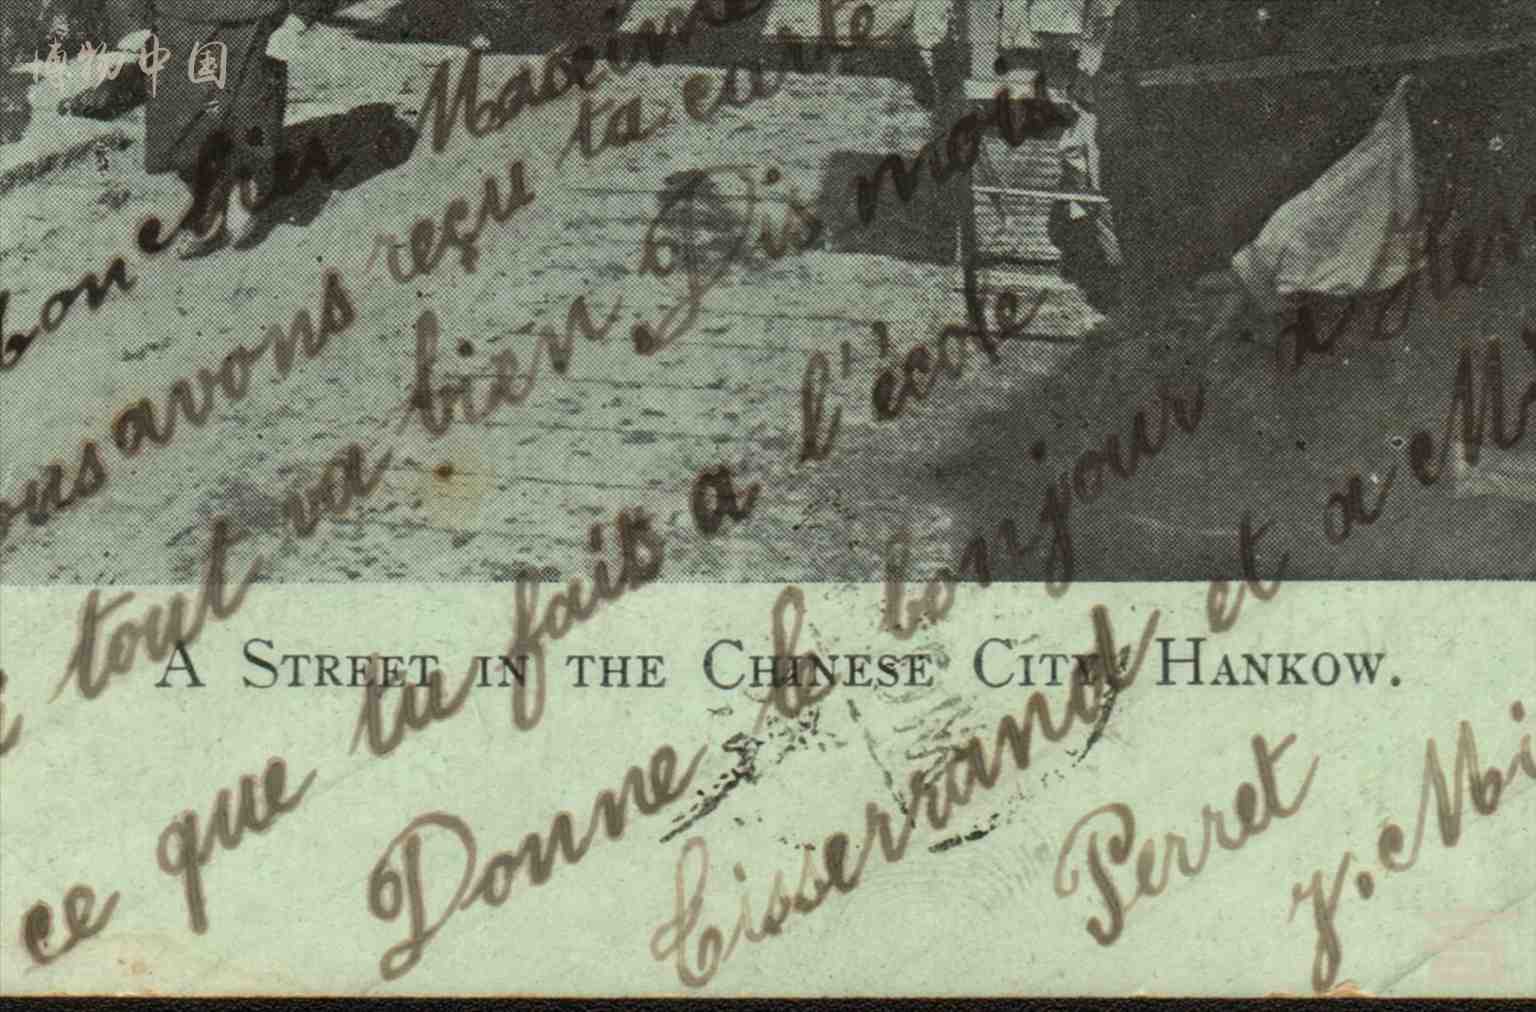 博物中国
bon cher Maxime
ous avons reçu ta carte
tout va bien Dis mois
ce que tu fais a l'école
Donne le bonjour a
Tisserrand et a
Perret
y. Mi
A STREET IN THE CHINESE CITY, HANKOW.